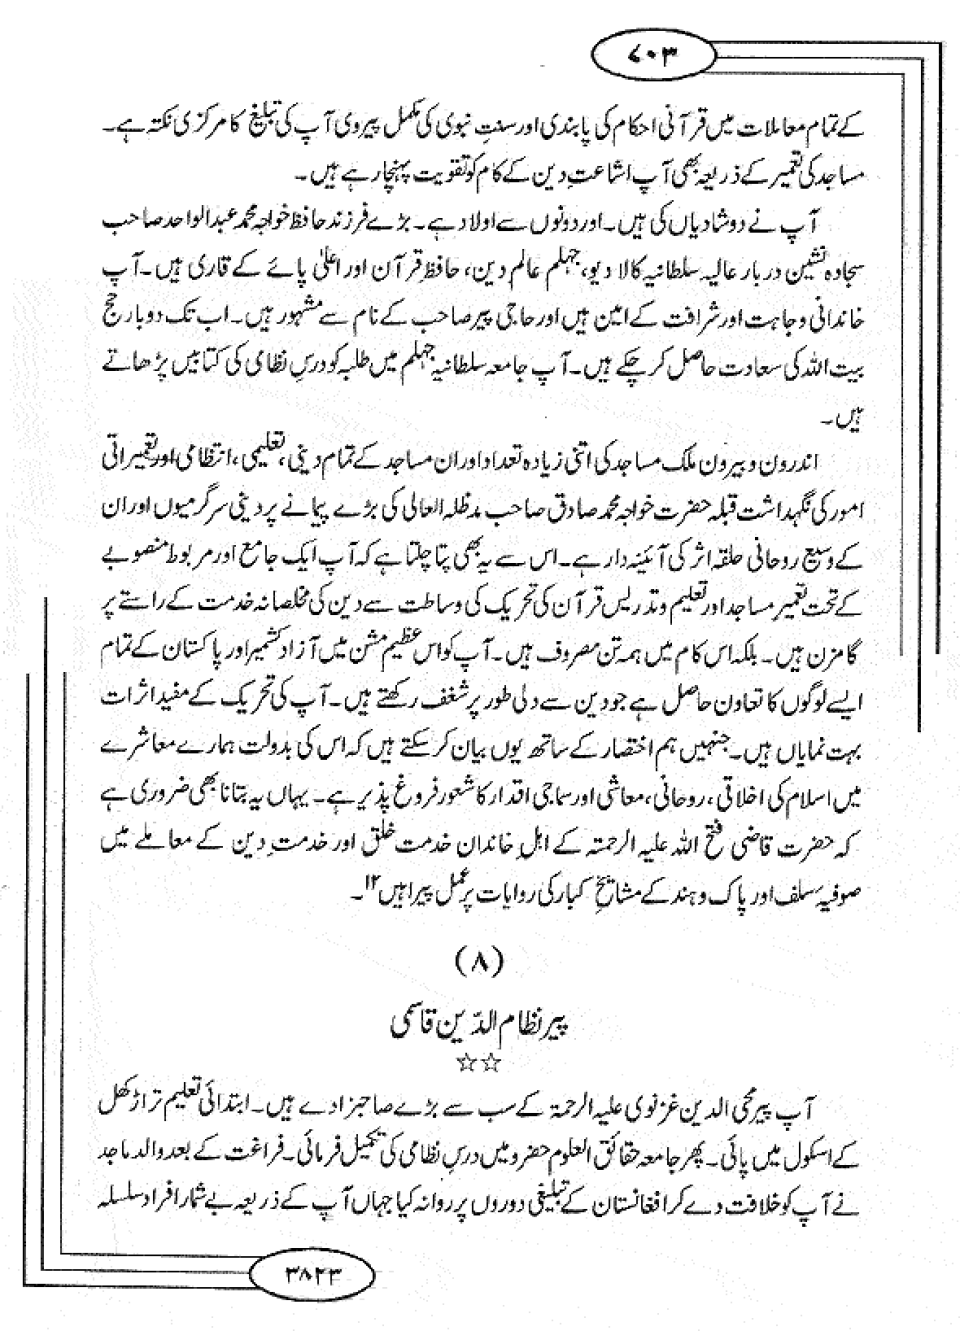 ۷۰۳
کے تمام معاملات میں قرآنی احکام کی پابندی اور سنتِ نبوی کی مکمل پیروی آپ کی تبلیغ کا مرکزی نکتہ ہے۔
مساجد کی تعمیر کے ذریعہ بھی آپ اشاعتِ دین کے کام کو تقویت پہنچا رہے ہیں۔
آپ نے دو شادیاں کی ہیں۔ اور دونوں سے اولاد ہے۔ بڑے فرزند حافظ خواجہ محمد عبدالواحد صاحب
سجادہ نشین دربار عالیہ سلطانیہ کالا دیو، جہلم عالم دین، حافظِ قرآن اور اعلیٰ پائے کے قاری ہیں۔ آپ
خاندانی وجاہت اور شرافت کے امین ہیں اور حاجی پیر صاحب کے نام سے مشہور ہیں۔ اب تک دو بار حج
بیت اللہ کی سعادت حاصل کر چکے ہیں۔ آپ جامعہ سلطانیہ جہلم میں طلبہ کو درسِ نظامی کی کتابیں پڑھاتے
ہیں۔
اندرون و بیرون ملک مساجد کی اتنی زیادہ تعداد اور ان مساجد کے تمام دینی، تعلیمی، انتظامی اور تعمیراتی
امور کی نگہداشت قبلہ حضرت خواجہ محمد صادق صاحب مدظلہ العالی کی بڑے پیمانے پر دینی سرگرمیوں اور ان
کے وسیع روحانی حلقہ اثر کی آئینہ دار ہے۔ اس سے یہ بھی پتا چلتا ہے کہ آپ ایک جامع اور مربوط منصوبے
کے تحت تعمیرِ مساجد اور تعلیم و تدریس قرآن کی تحریک کی وساطت سے دین کی مخلصانہ خدمت کے راستے پر
گامزن ہیں۔ بلکہ اس کام میں ہمہ تن مصروف ہیں۔ آپ کو اس عظیم مشن میں آزاد کشمیر اور پاکستان کے تمام
ایسے لوگوں کا تعاون حاصل ہے جو دین سے دلی طور پر شغف رکھتے ہیں۔ آپ کی تحریک کے مفید اثرات
بہت نمایاں ہیں۔ جنہیں ہم اختصار کے ساتھ یوں بیان کر سکتے ہیں کہ اس کی بدولت ہمارے معاشرے
میں اسلام کی اخلاقی، روحانی، معاشی اور سماجی اقدار کا شعور فروغ پذیر ہے۔ یہاں یہ بتانا بھی ضروری ہے
کہ حضرت قاضی فتح اللہ علیہ الرحمتہ کے اہلِ خاندان خدمت خلق اور خدمتِ دین کے معاملے میں
صوفیہ سلف اور پاک و ہند کے مشایخِ کبار کی روایات پر عمل پیرا ہیں ۱۲۔
(۸)
پیر نظام الدّین قاسمی
☆☆
آپ پیر محی الدین غزنوی علیہ الرحمۃ کے سب سے بڑے صاحبزادے ہیں۔ ابتدائی تعلیم تراڑکھل
کے اسکول میں پائی۔ پھر جامعہ حقائق العلوم حضرو میں درسِ نظامی کی تکمیل فرمائی۔ فراغت کے بعد والد ماجد
نے آپ کو خلافت دے کر افغانستان کے تبلیغی دوروں پر روانہ کیا جہاں آپ کے ذریعہ بے شمار افراد سلسلہ
۳۸۲۳